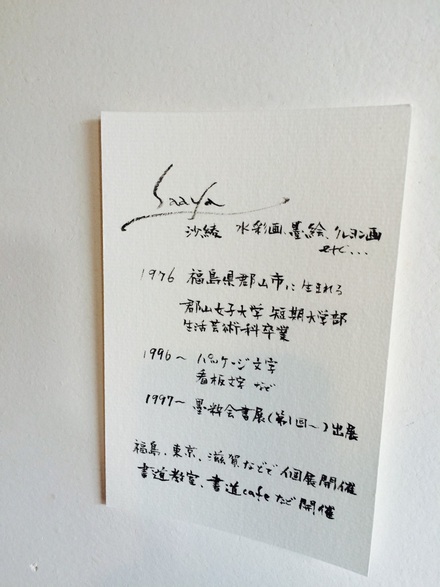 Saaya
沙綾 水彩画、墨絵、クレヨン画
etc...
1976 福島県郡山市に生まれる
郡山女子大学 短期大学部
生活芸術科卒業
1996〜 パッケージ文字
看板文字 など
1997〜 墨粋会書展(第1回〜)出展
福島、東京、滋賀などで個展開催
書道教室、書道cafeなど開催